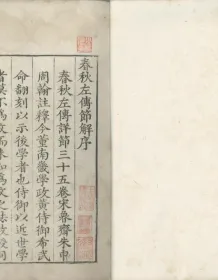 春秋左傳節解序
春秋左傳詳節三十五卷宋魯齋朱申
周翰註釋今董南畿學政黃侍御希武
命翻刻以示後學者也侍御以近世學
者莫不為文而未知為文之法故授詞